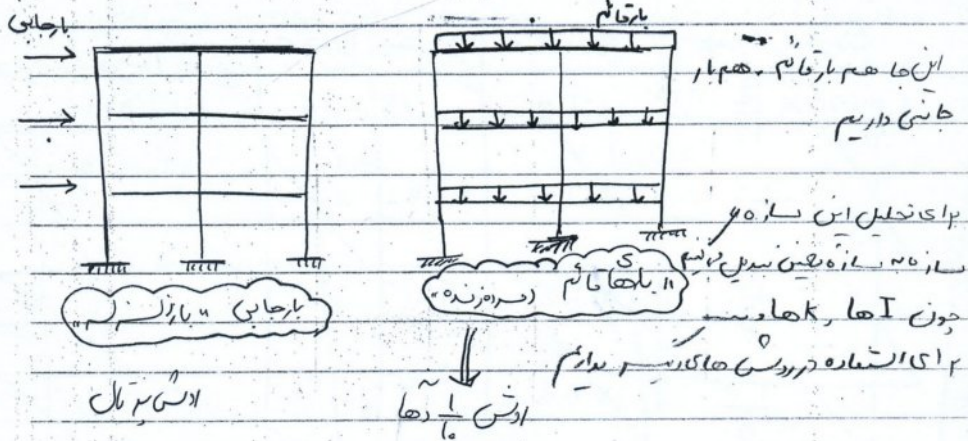 بار قائم
بار جانبی
این جا هم بار قائم، هم بار
جانبی داریم
برای تحلیل این سازه
سازه به سازه معین تبدیل می‌کنیم
چون I ها، k ها و
برای استفاده در روش های دیگر نداریم
بارهای قائم "مرده و زنده"
بار جانبی "بار زلزله"
روش پرتال
روش 1/10 دها